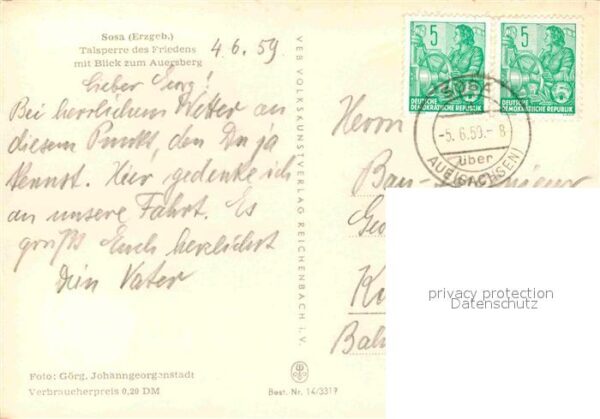 Sosa (Erzgeb.)
Talsperre des Friedens
mit Blick zum Auersberg
4.6.59
Lieber Georg!
Bei herrlichem Wetter an
diesem Punkt, den Du ja
kennst. Hier gedenke ich
an unsere Fahrt. Es
grüßt Euch herzlichst
Dein Vater
Foto: Görg, Johanngeorgenstadt
Verbraucherpreis 0,20 DM
VEB VOLKSKUNSTVERLAG REICHENBACH i. V.
Best.-Nr. 14/3319
5
DEUTSCHE
DEMOKRATISCHE REPUBLIK
5
DEUTSCHE
DEMOKRATISCHE REPUBLIK
SOSA
-5.6.59.-8
über
AUE (SACHSEN)
Herrn
Bau-
privacy protection
Datenschutz